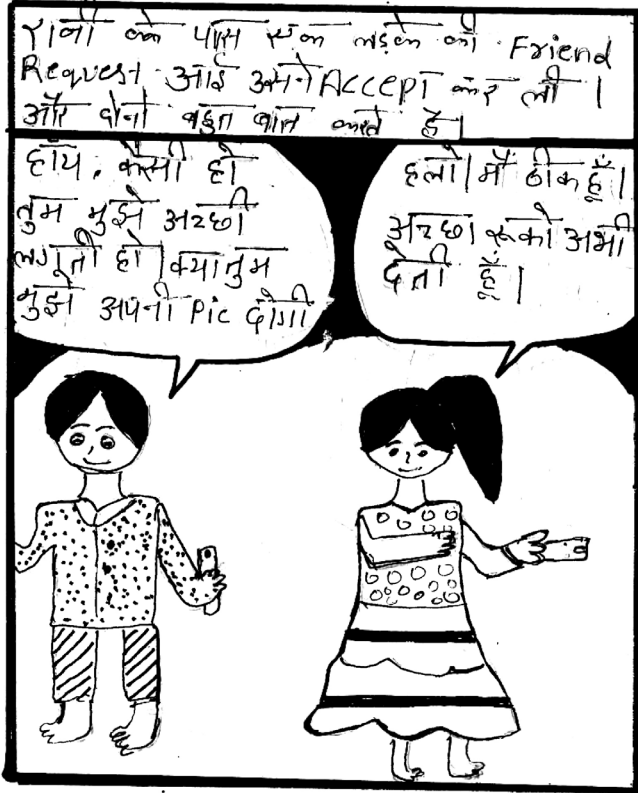 रानी के पास एक लड़के की Friend
Request आई उसने Accept कर ली।
और दोनो बहुत बात करते है।
हाय, केसी हो
तुम मुझे अच्छी
लगती हो। क्या तुम
मुझे अपनी Pic दोगी
हलो। मैं ठीक हूँ।
अच्छा रूको अभी
देती हूँ।